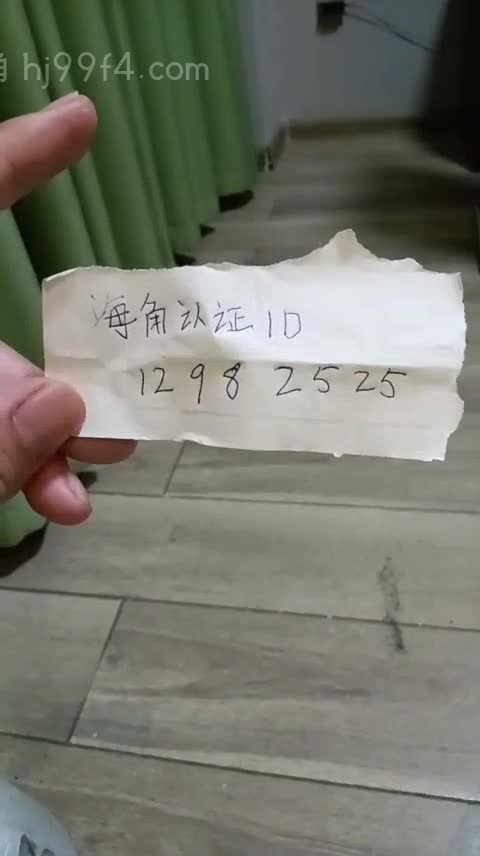 角 hj99f4.com
海角认证ID
1298 2525